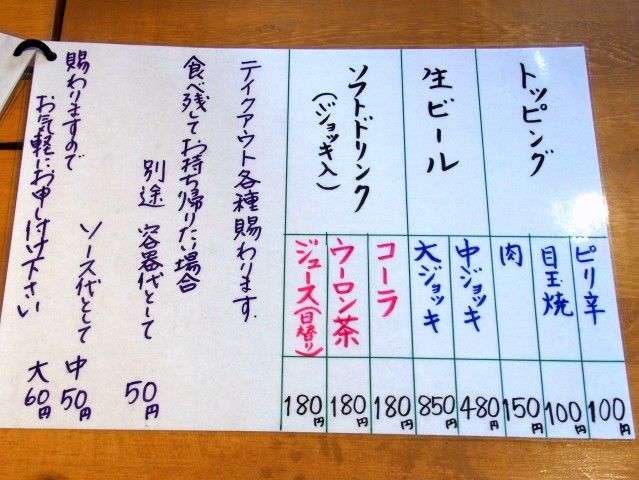 トッピング
ピリ辛
100円
目玉焼
100円
肉
150円
生ビール
中ジョッキ
480円
大ジョッキ
850円
ソフトドリンク
(ジョッキ入)
コーラ
180円
ウーロン茶
180円
ジュース(日替り)
180円
テイクアウト各種賜わります.
食べ残してお持ち帰りたい場合
別途 容器代として 50円
ソース代として 中 50円
大 60円
賜わりますので
お気軽にお申し付け下さい